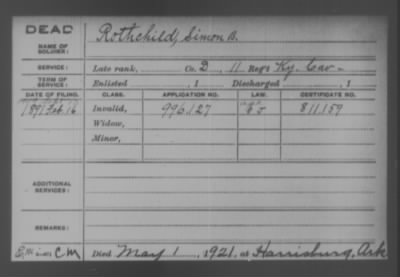 DEAD
NAME OF SOLDIER: Rothchild, Simon B.
SERVICE: Late rank, Co. D, 11 Reg't Ky. Cav -
TERM OF SERVICE: Enlisted , 1 Discharged , 1
DATE OF FILING. CLASS. APPLICATION NO. LAW. CERTIFICATE NO.
1891 Feb. 16 Invalid, 996.127 811.159
Widow,
Minor,
ADDITIONAL SERVICES:
REMARKS:
C M Died May 1, 1921, at Harrisburg, Ark